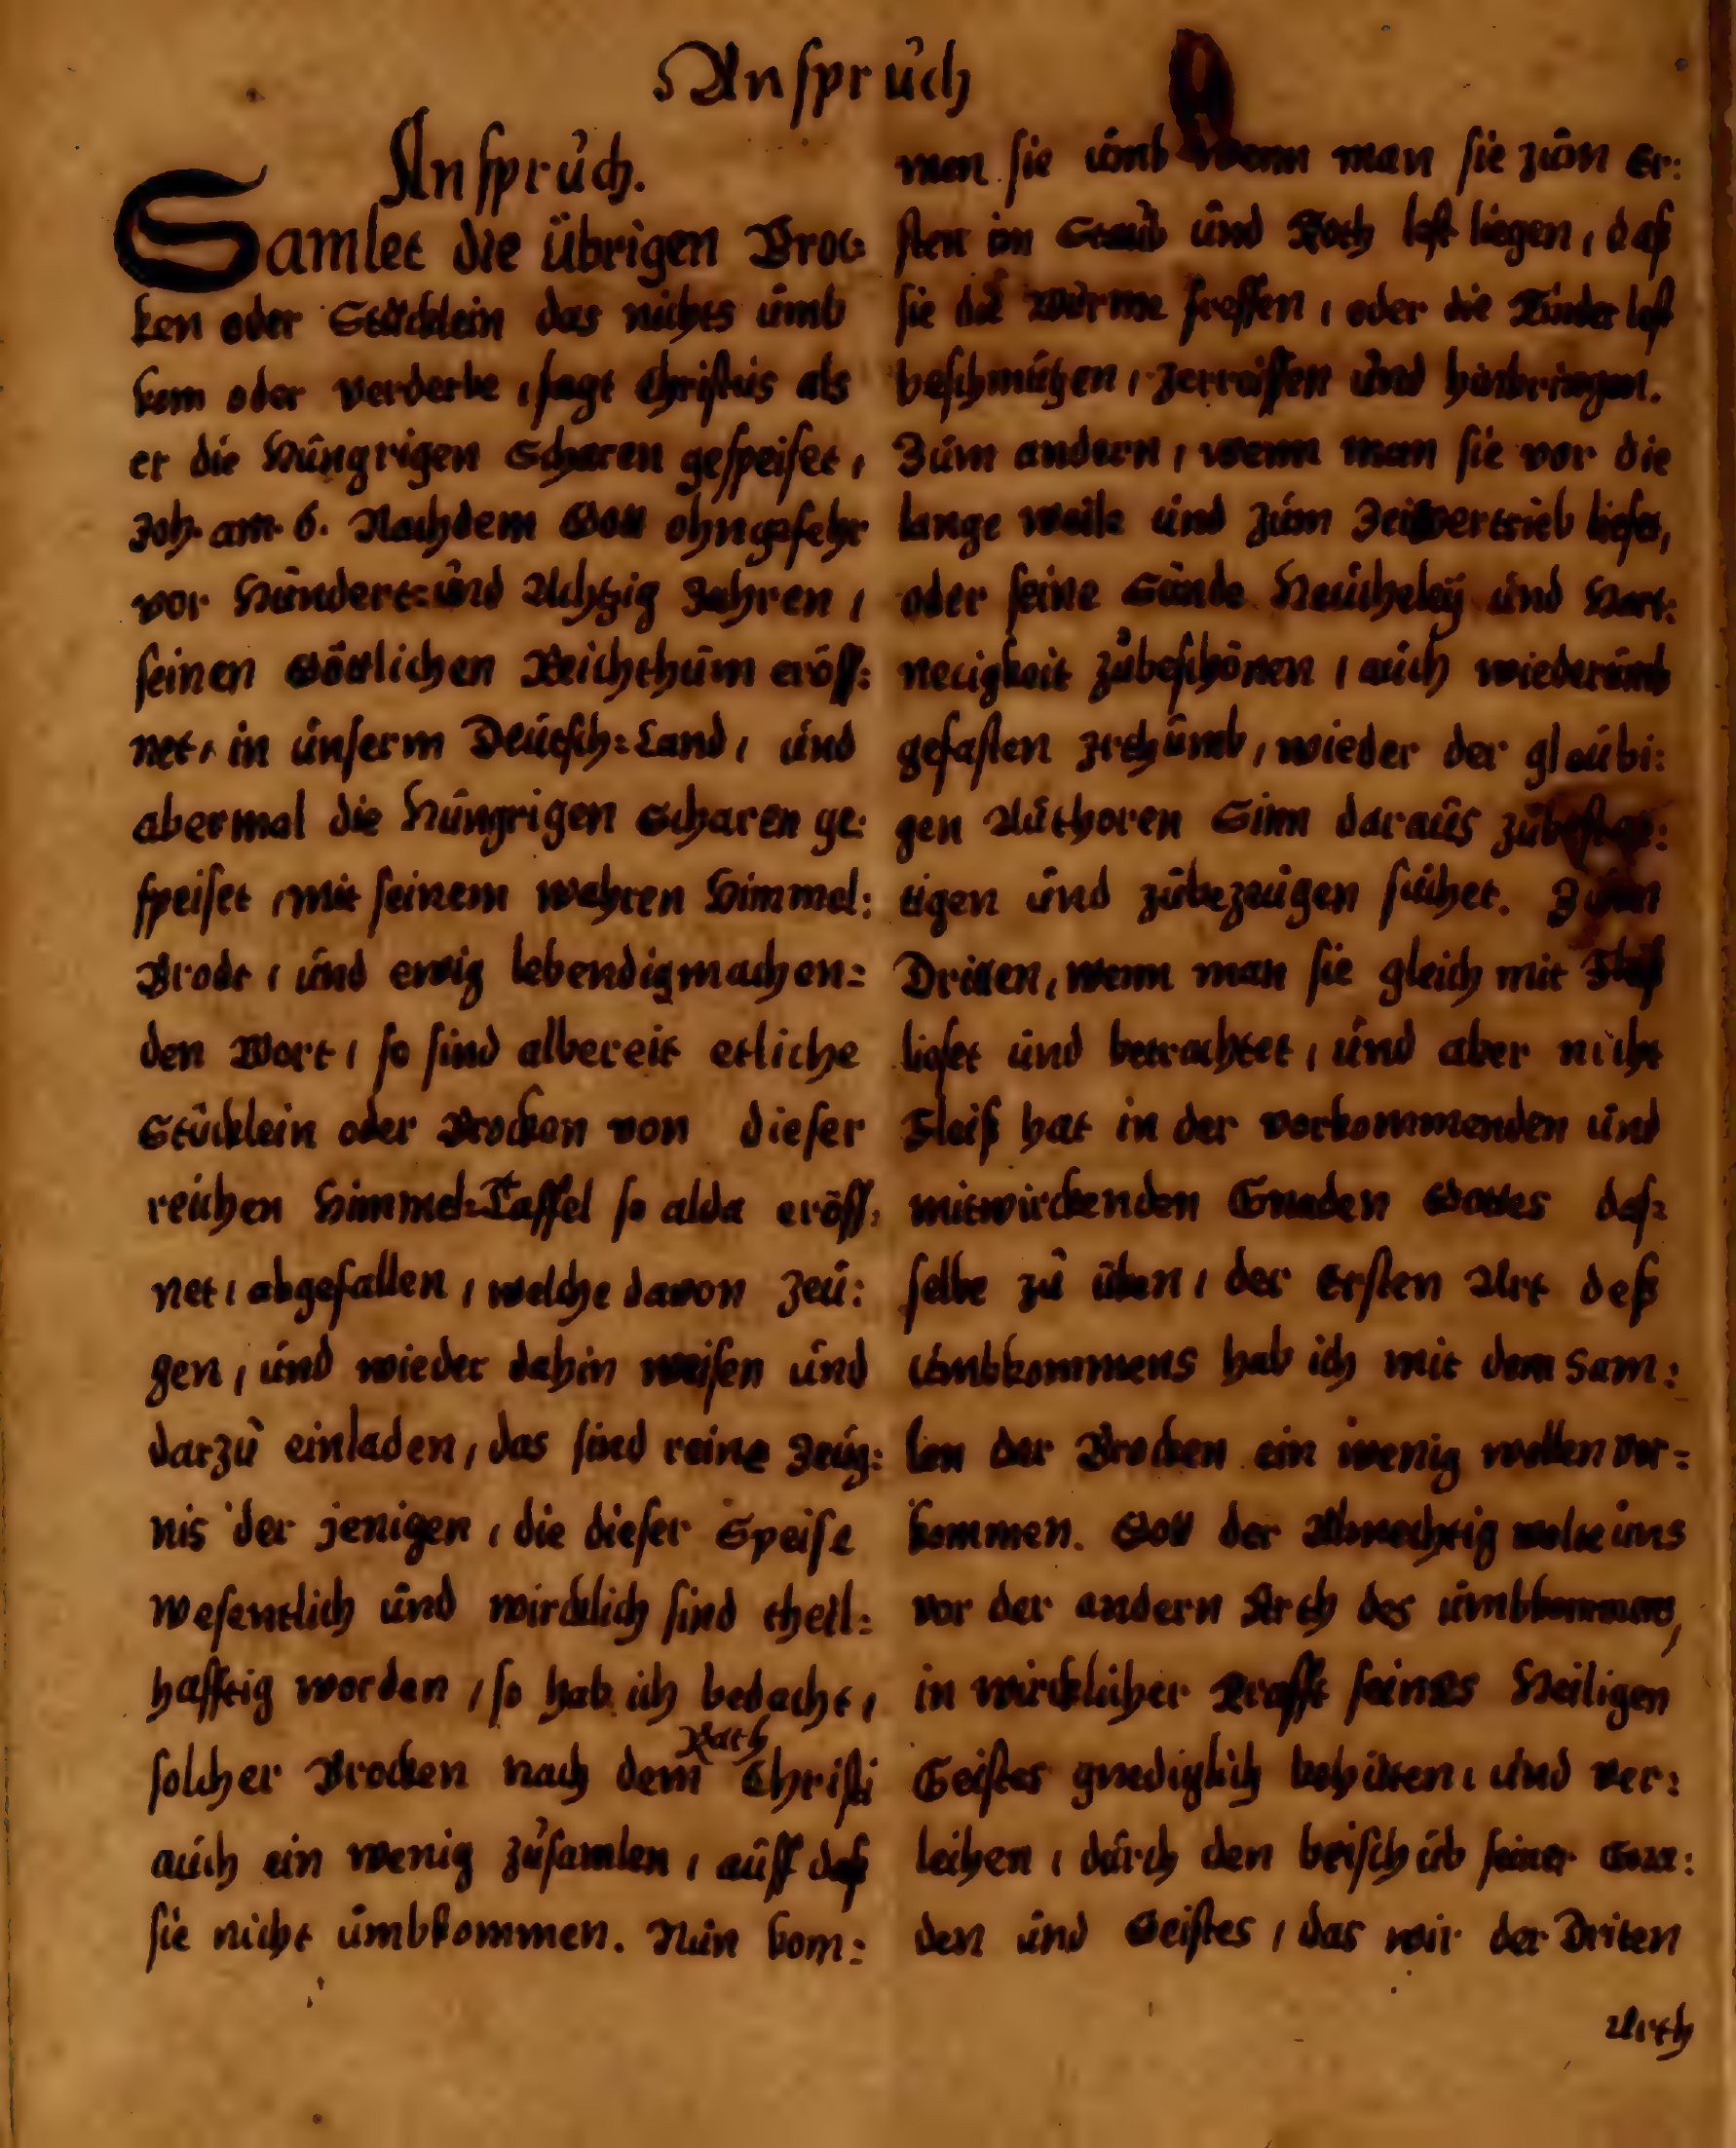 Anspruch
Anspruch.
Samlet die übrigen Broc-
ken oder Stücklein das nichts umb
kom oder verderbe, sagt Christus als
er die Hungrigen Scharen gespeiset,
Joh. am. 6. Nachdem Gott ohngefehr
vor Hundert=und Achtzig Jahren,
seinen Göttlichen Reichthum eröff:
net, in unserm Deutsch=Land, und
abermal die Hungrigen Scharen ge:
speiset, mit seinem wahren Himmel:
Brodt, und ewig lebendigmachen=
den Wort, so sind albereit etliche
Stücklein oder Brocken von dieser
reichen Himmel=Taffel so alda eröff:
net, abgefallen, welche davon zeu:
gen, und wieder dahin weisen und
darzu einladen, das sind reine Zeug:
nis der jenigen, die dieser Speise
wesentlich und wircklich sind theil:
hafftig worden, so hab ich bedacht,
solcher Brocken nach dem Rath Christi
auch ein wenig zusamlen, auff daß
sie nicht umbkommen. Nun kom:
men sie umb wenn man sie zum Er:
sten im Staub und Koth lest liegen, daß
sie die Würme fressen, oder die Kinder lest
beschmützen, zerreissen und hinbringen.
Zum andern, wenn man sie vor die
lange weile und zum Zeitvertrieb lieset,
oder seine Sünde Heucheley und Hart:
neckigkeit zubeschönen, auch wiederumb
gefasten Irthumb, wieder der gleubi:
gen Authoren Sinn daraus zubestet:
tigen und zubezeugen suchet. Zum
Dritten, wenn man sie gleich mit Fleiß
lieset und betrachtet, und aber nicht
Fleiß hat in der vorkommenden und
mitwirckenden Gnaden Gottes das=
selbe zu üben, der Ersten Art deß
Umbkommens hab ich mit dem Sam:
len der Brocken ein wenig wollen vor=
kommen. Gott der Almechtig wolte uns
vor der andern Arth des umbkommens,
in wircklicher Krafft seines Heiligen
Geistes gnediglich behüten, und ver:
leihen, durch den beischub seiner Gna:
den und Geistes, das wir der Driten
Arth